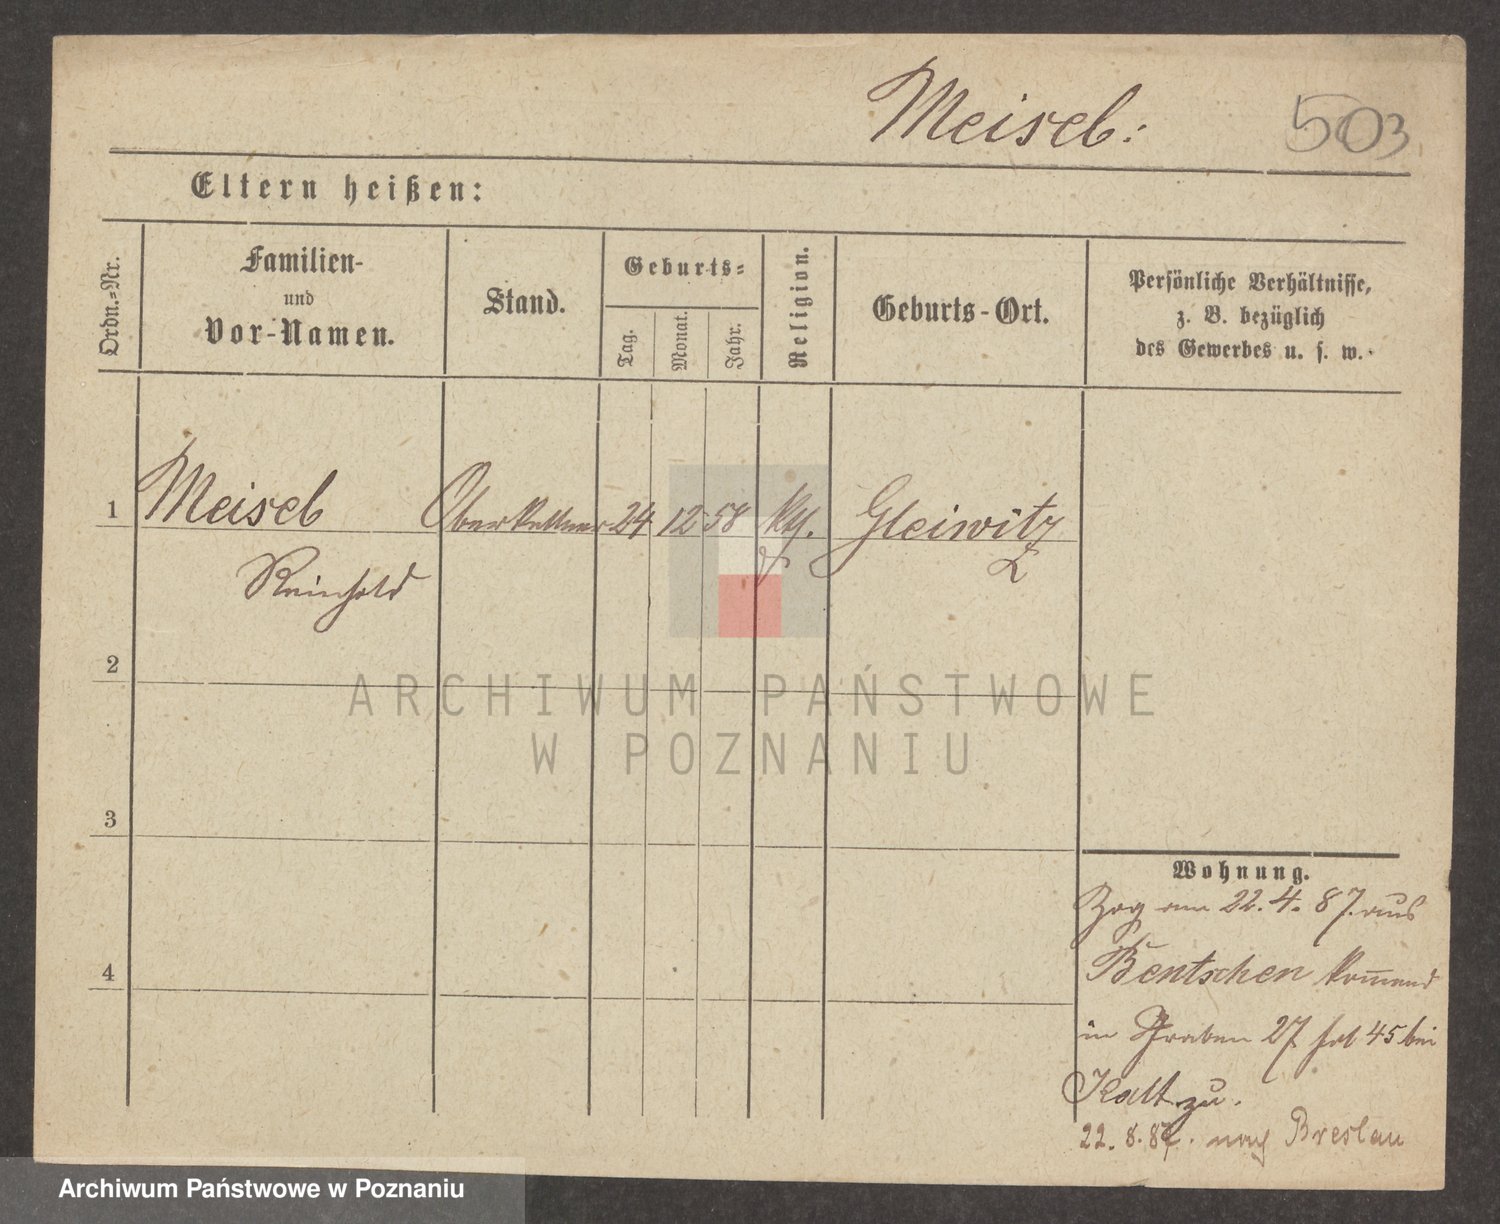 Meisel:
503
Eltern heißen:
Ordn.=Nr.
Familien-
und
Vor-Namen.
Stand.
Geburts=
Tag.
Monat.
Jahr.
Religion.
Geburts-Ort.
Persönliche Verhältnisse,
z. B. bezüglich
des Gewerbes u. s. w.
1
Meisel
Oberkellner
24
12
58
kth.
Gleiwitz
Reinhold
2
ARCHIWUM PAŃSTWOWE
W POZNANIU
3
4
Wohnung.
Zog am 22.4.87. aus
Bentschen kommend
in Graben 27 45 bei
Katt zu.
22.8.87. nach Breslau
Archiwum Państwowe w Poznaniu